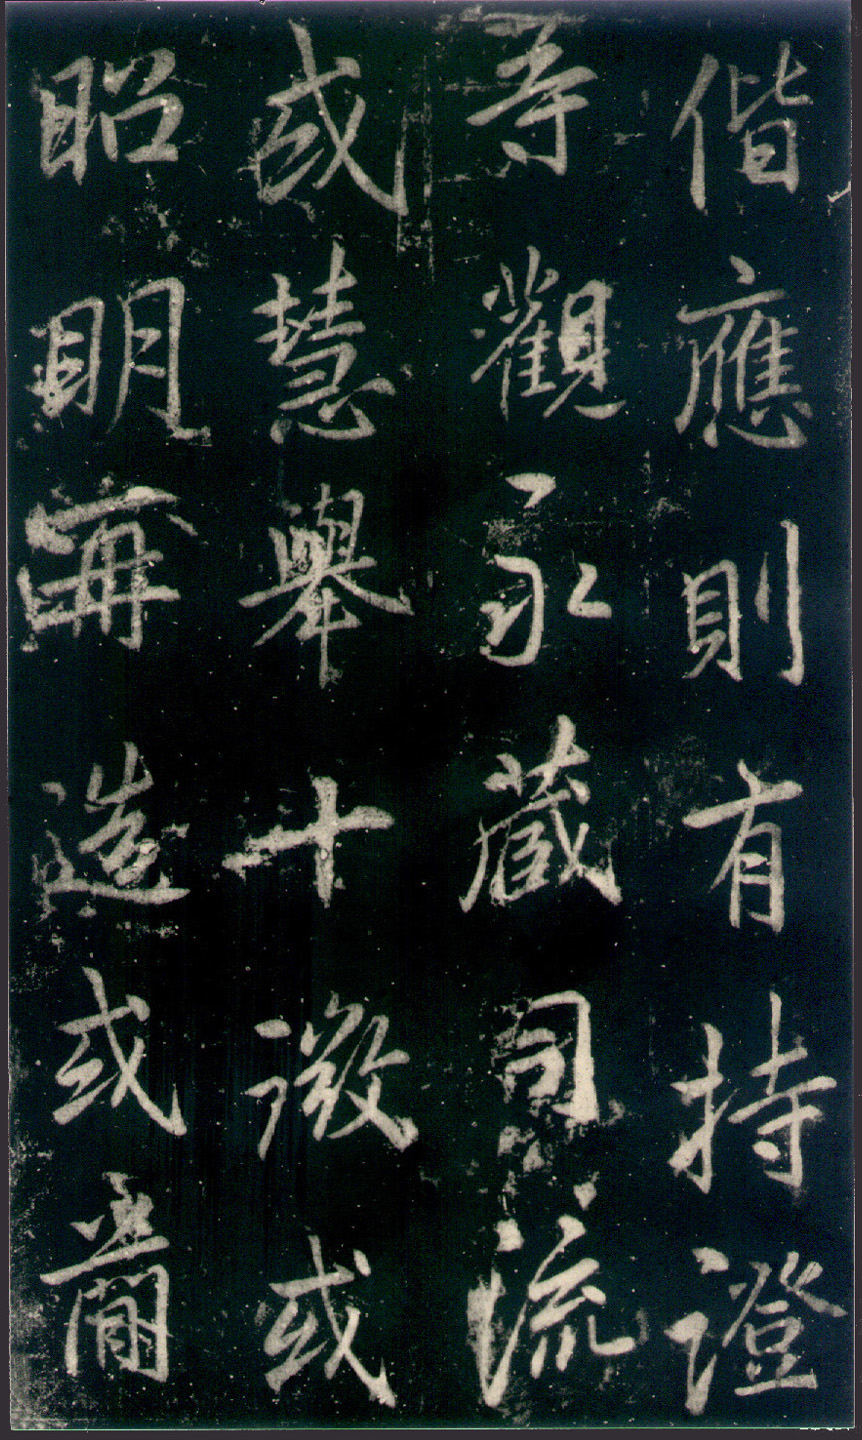 偕應則有持證
等觀永藏司流
或慧舉十徵或
昭明再造或